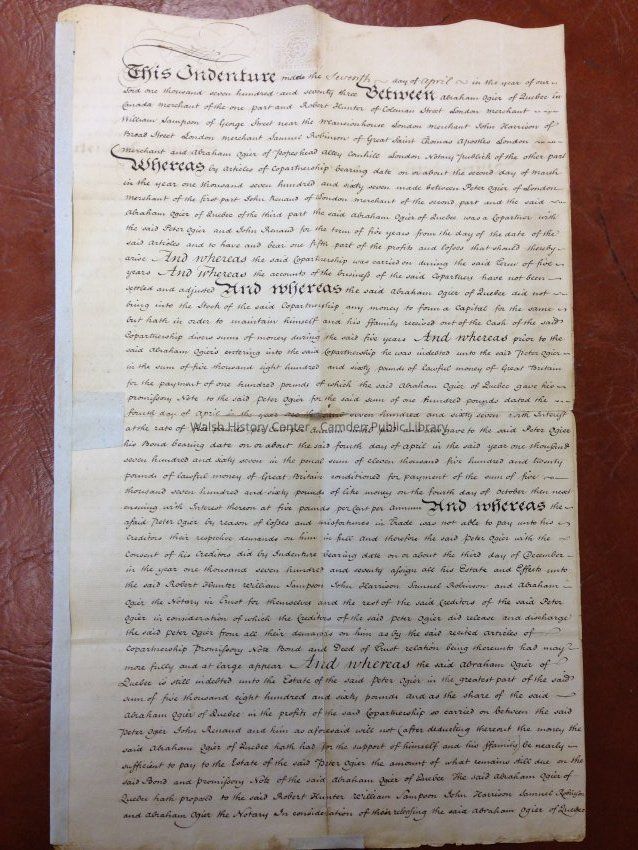 This Indenture made the Seventh day of April in the year of our
Lord one thousand seven hundred and seventy three Between Abraham Ogier of Quebec in
Canada merchant of the one part and Robert Hunter of Coleman Street London merchant
William Sampson of George Street near the Mansionhouse London merchant John Harrison of
Broad Street London merchant Samuel Robinson of Great Saint Thomas Apostles London
merchant and Abraham Ogier of Popeshead Alley Cornhill London Notary Publick of the other part
Whereas by Articles of Copartnership bearing date on or about the second day of March
in the year one thousand seven hundred and sixty seven made between Peter Ogier of London
merchant of the first part John Renaud of London merchant of the second part and the said
Abraham Ogier of Quebec of the third part the said Abraham Ogier of Quebec was a Copartner with
the said Peter Ogier and John Renaud for the term of five years from the day of the date of the
said Articles and to have and bear one fifth part of the profits and losses that should thereby
arise And whereas the said Copartnership was carried on during the said Term of five
years And whereas the accounts of the business of the said Copartners have not been
settled and adjusted And whereas the said Abraham Ogier of Quebec did not
bring into the Stock of the said Copartnership any money to form a Capital for the same
but hath in order to maintain himself and his ffamily received out of the Cash of the said
Copartnership divers sums of money during the said five years And whereas prior to the
said Abraham Ogiers entering into the said Copartnership he was indebted unto the said Peter Ogier
in the sum of five thousand eight hundred and sixty pounds of lawful money of Great Britain
for the payment of one hundred pounds of which the said Abraham Ogier of Quebec gave his
promissory Note to the said Peter Ogier for the said sum of one hundred pounds dated the
fourth day of April in the year one thousand seven hundred and sixty seven with Interest
at the rate of five per Cent per annum and also made and gave to the said Peter Ogier
Walsh History Center - Camden Public Library
his Bond bearing date on or about the said fourth day of April in the said year one thousand
seven hundred and sixty seven in the penal sum of eleven thousand five hundred and twenty
pounds of lawful money of Great Britain conditioned for payment of the sum of five
thousand seven hundred and sixty pounds of like money on the fourth day of October then next
ensuing with Interest thereon at five pounds per Cent per Annum And whereas the
afsaid Peter Ogier by reason of losses and misfortunes in Trade was not able to pay unto his
Creditors their respective demands on him in full and therefore the said Peter Ogier with the
Consent of his Creditors did by Indenture bearing date on or about the third day of December
in the year one thousand seven hundred and seventy assign all his Estate and Effects unto
the said Robert Hunter William Sampson John Harrison Samuel Robinson and Abraham
Ogier the Notary in Trust for themselves and the rest of the said Creditors of the said Peter
Ogier in consideration of which the Creditors of the said Peter Ogier did release and discharge
the said Peter Ogier from all their demands on him as by the said recited articles of
Copartnership Promissory Note Bond and Deed of Trust relation being thereunto had may
more fully and at large appear And whereas the said Abraham Ogier of
Quebec is still indebted unto the Estate of the said Peter Ogier in the greatest part of the said
sum of five thousand eight hundred and sixty pounds and as the share of the said
Abraham Ogier of Quebec in the profits of the said Copartnership so carried on between the said
Peter Ogier John Renaud and him as aforesaid will not (after deducting thereout the money the
said Abraham Ogier of Quebec hath had for the support of himself and his ffamily) be nearly
sufficient to pay to the Estate of the said Peter Ogier the amount of what remains still due on the
said Bond and Promissory Note of the said Abraham Ogier of Quebec The said Abraham Ogier of
Quebec hath proposed to the said Robert Hunter William Sampson John Harrison Samuel Robinson
and Abraham Ogier the Notary In consideration of their releasing the said Abraham Ogier of Quebec